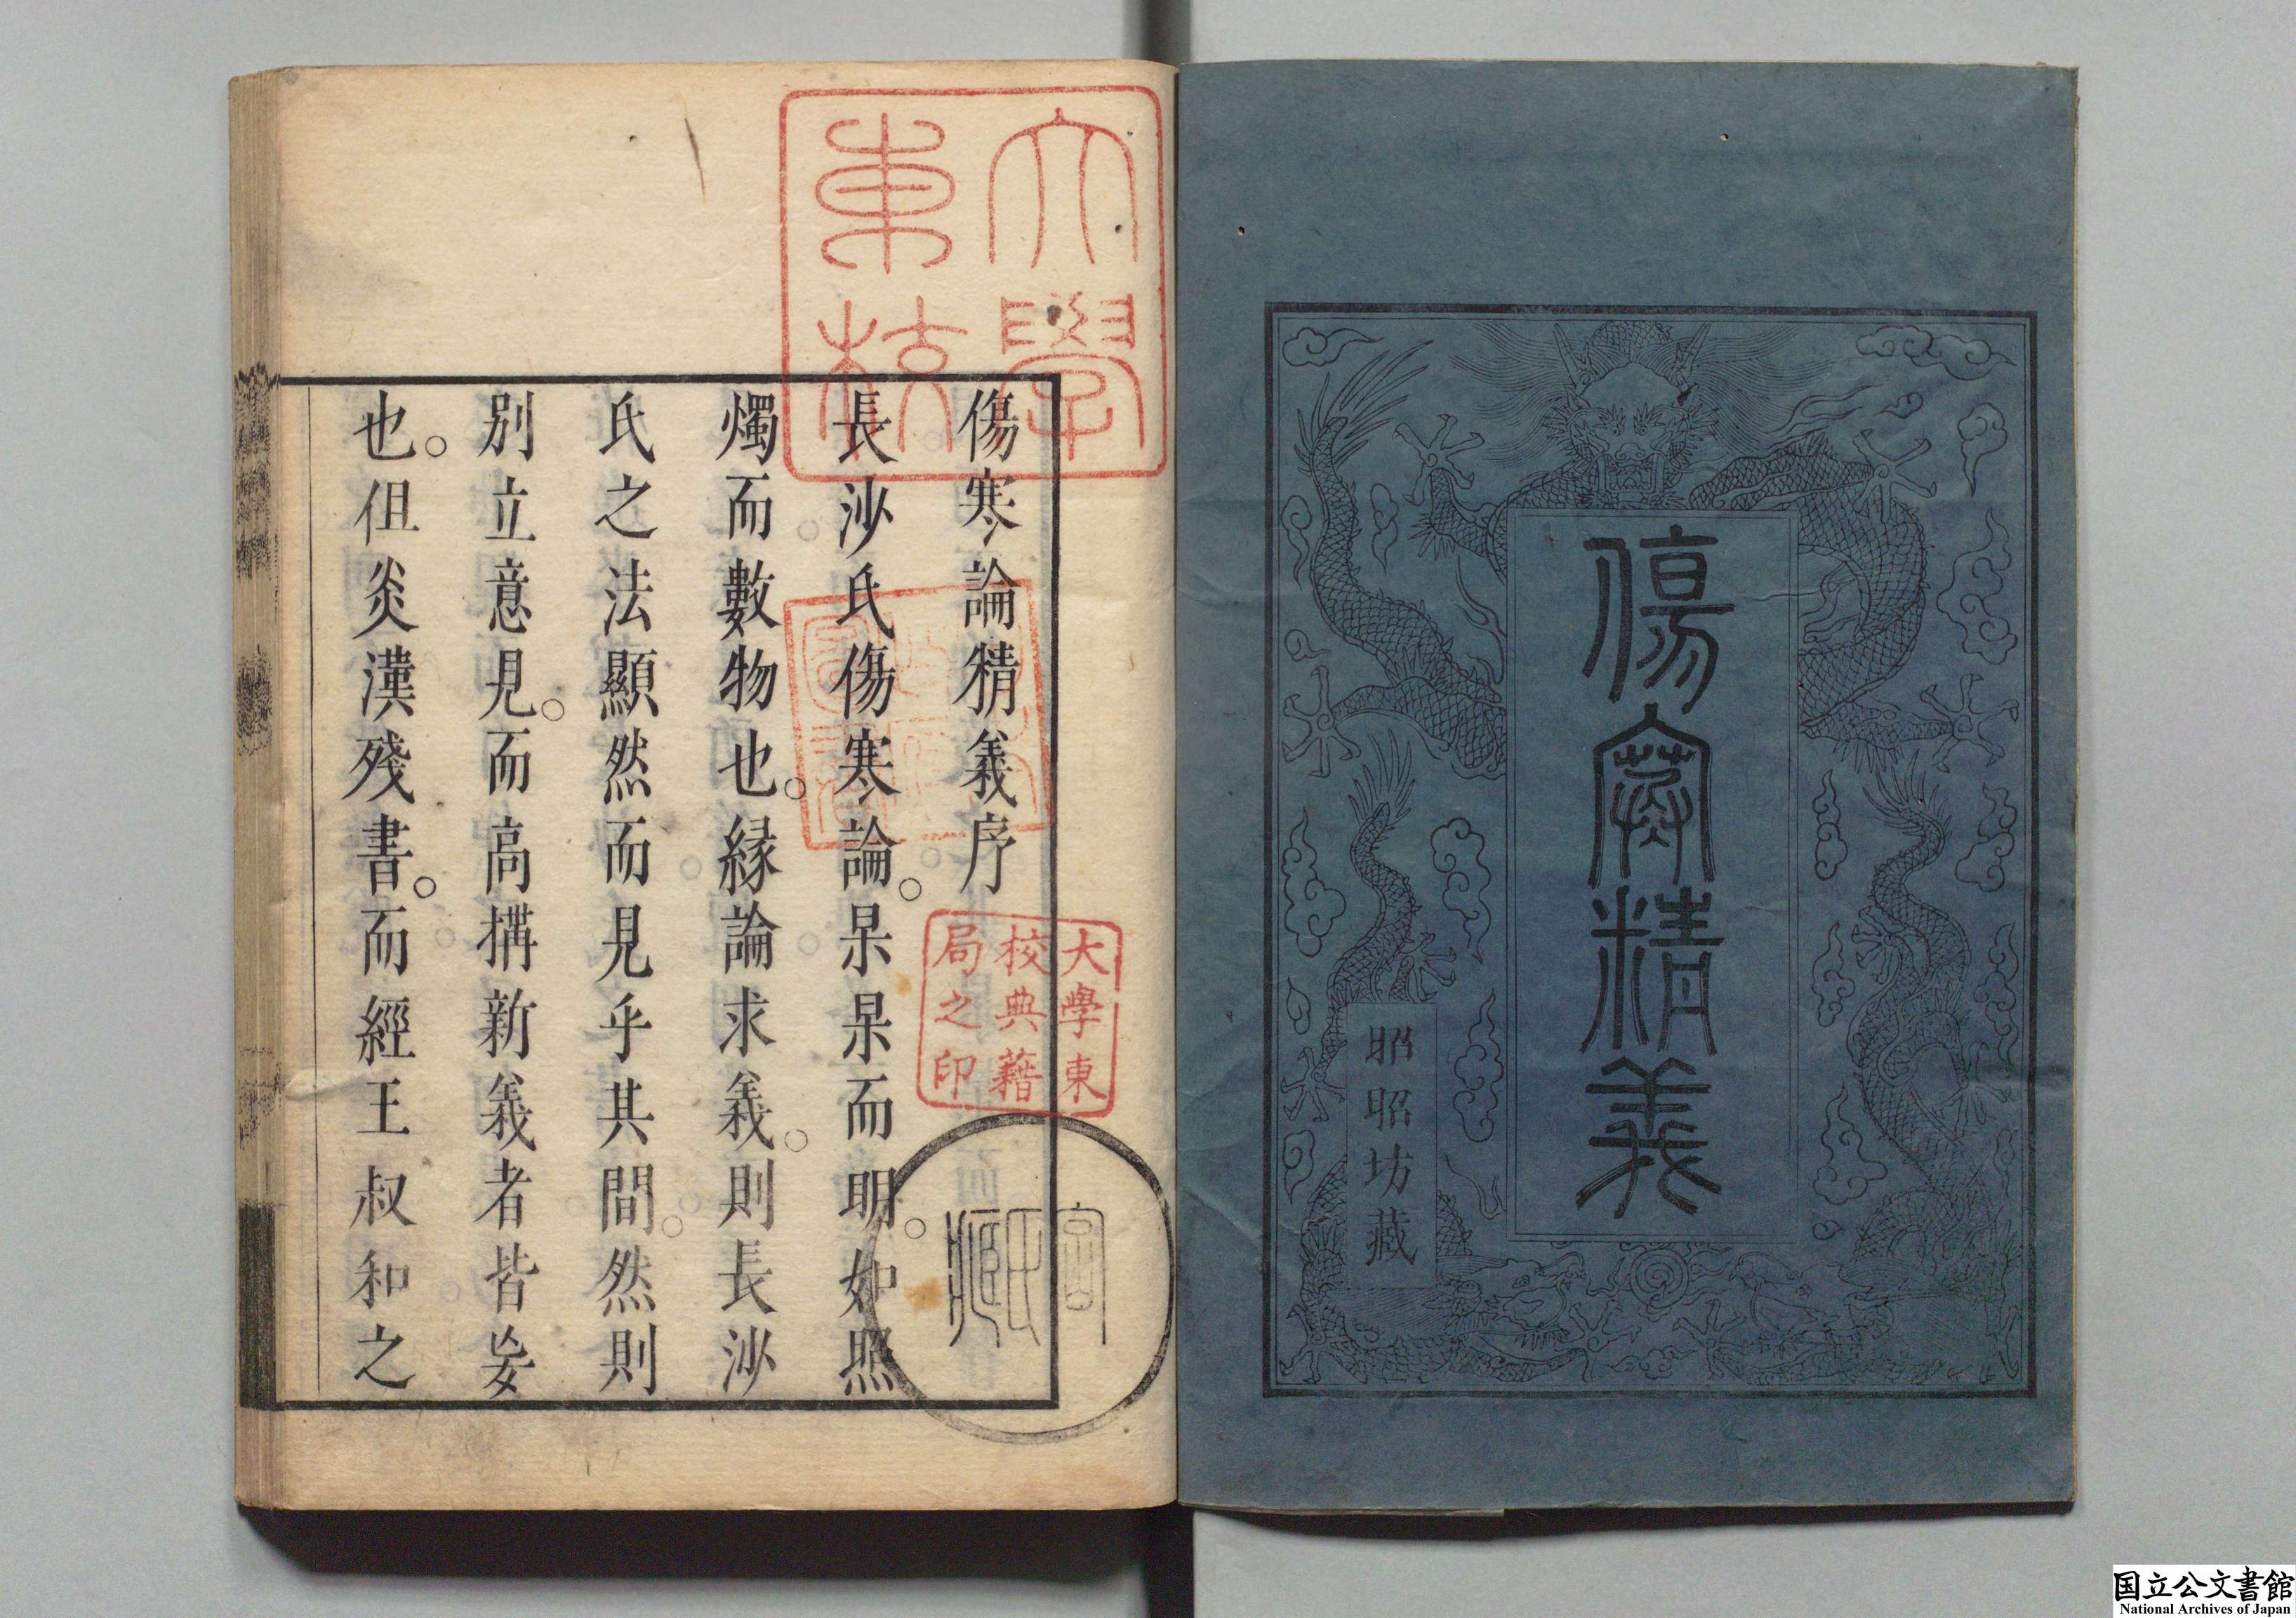 傷寒精義
昭昭坊藏
大學
東校
傷寒論精義序
長沙氏傷寒論。杲杲而明。如照
燭而數物也。縁論求義。則長沙
氏之法顯然而見乎其間。然則
別立意見。而高搆新義者皆妄
也。但炎漢殘書。而經王叔和之
大學東
校典籍
局之印
國立公文書館
National Archives of Japan